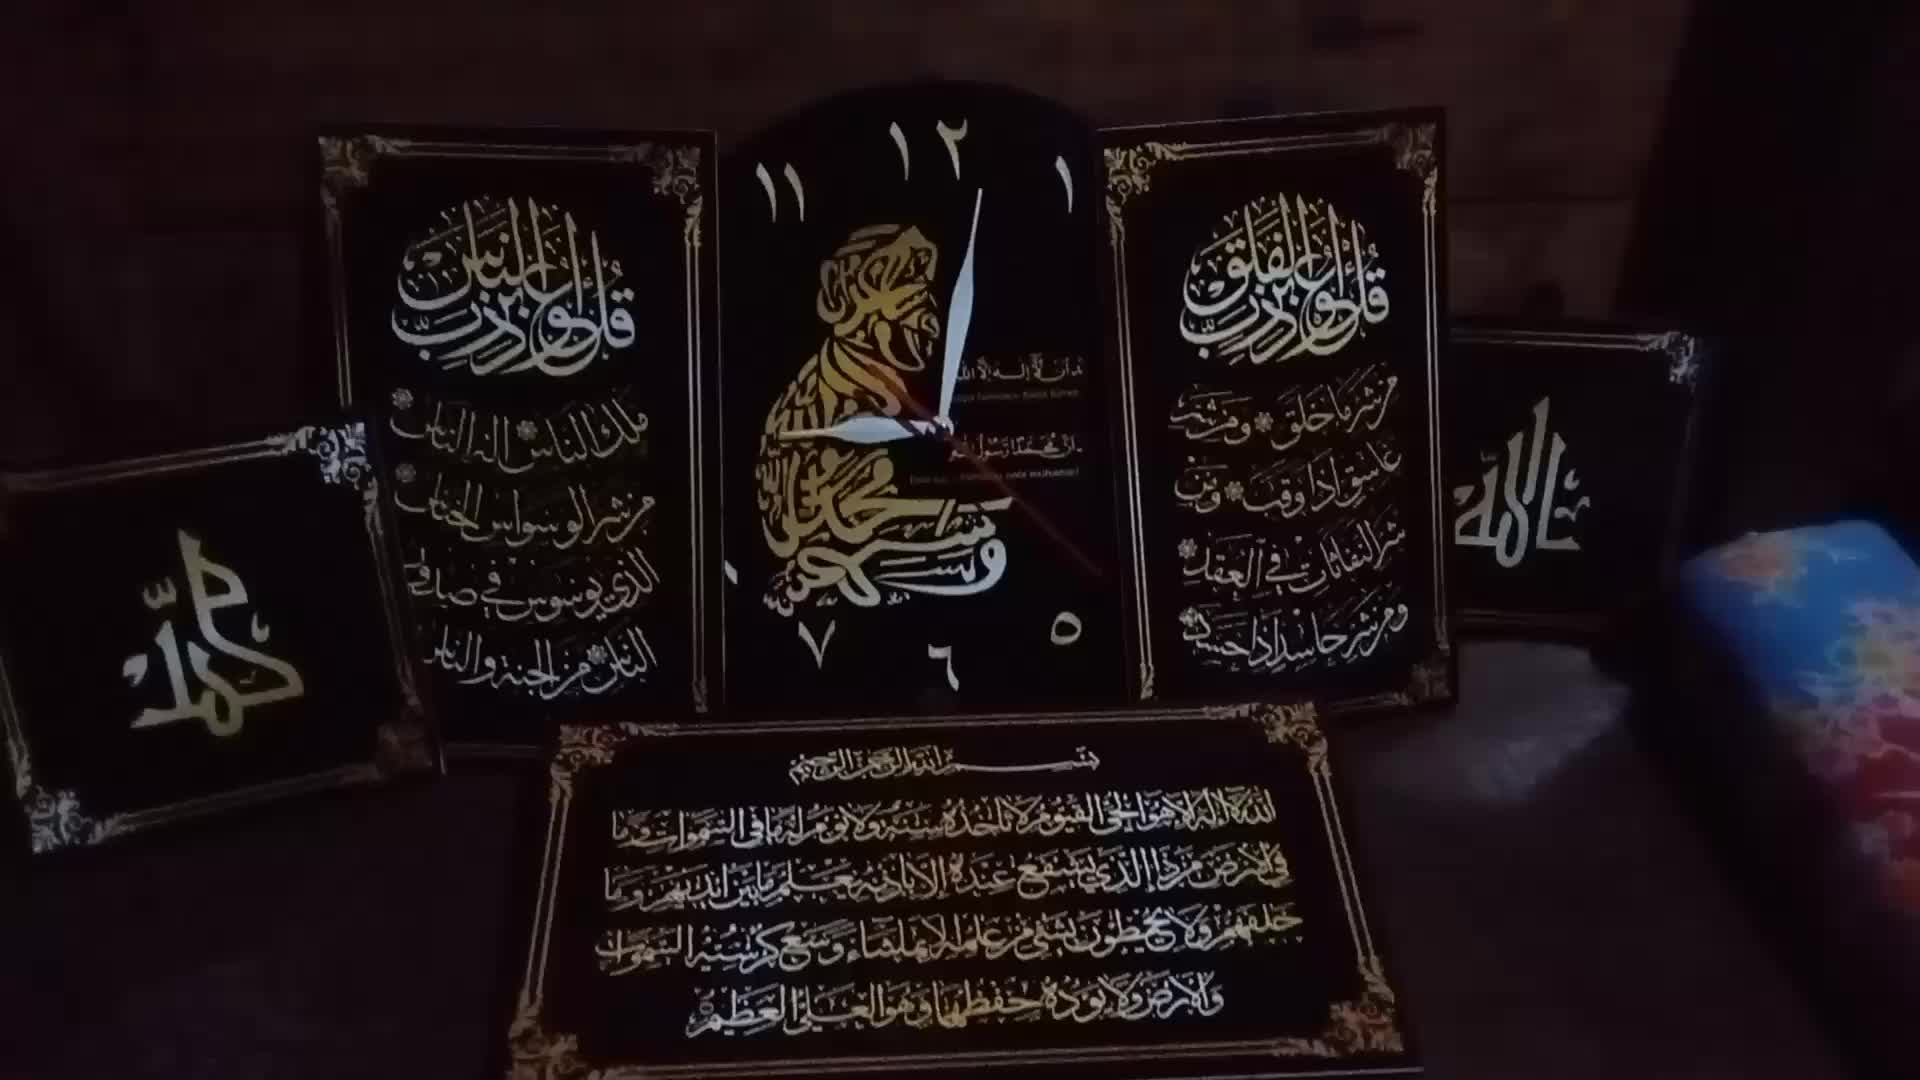 ١٢
١
١١
٥
٦
٧
قل أعوذ برب الناس
ملك الناس اله الناس
من شر الوسواس الخناس
الذي يوسوس في صدور
الناس من الجنة والناس
قل أعوذ برب الفلق
من شر ما خلق ومن شر
غاسق اذا وقب ومن
شر النفاثات في العقد
ومن شر حاسد اذا حسد
محمد
الله
أن لا إله إلا الله
محمدا رسول
بسم الله الرحمن الرحيم
الله لا إله إلا هو الحي القيوم لا تأخذه سنة ولا نوم له ما في السموات وما
في الارض من ذا الذي يشفع عنده إلا بإذنه يعلم ما بين أيديهم وما
خلفهم ولا يحيطون بشيء من علمه إلا بما شاء وسع كرسيه السموات
والارض ولا يؤده حفظهما وهو العلي العظيم